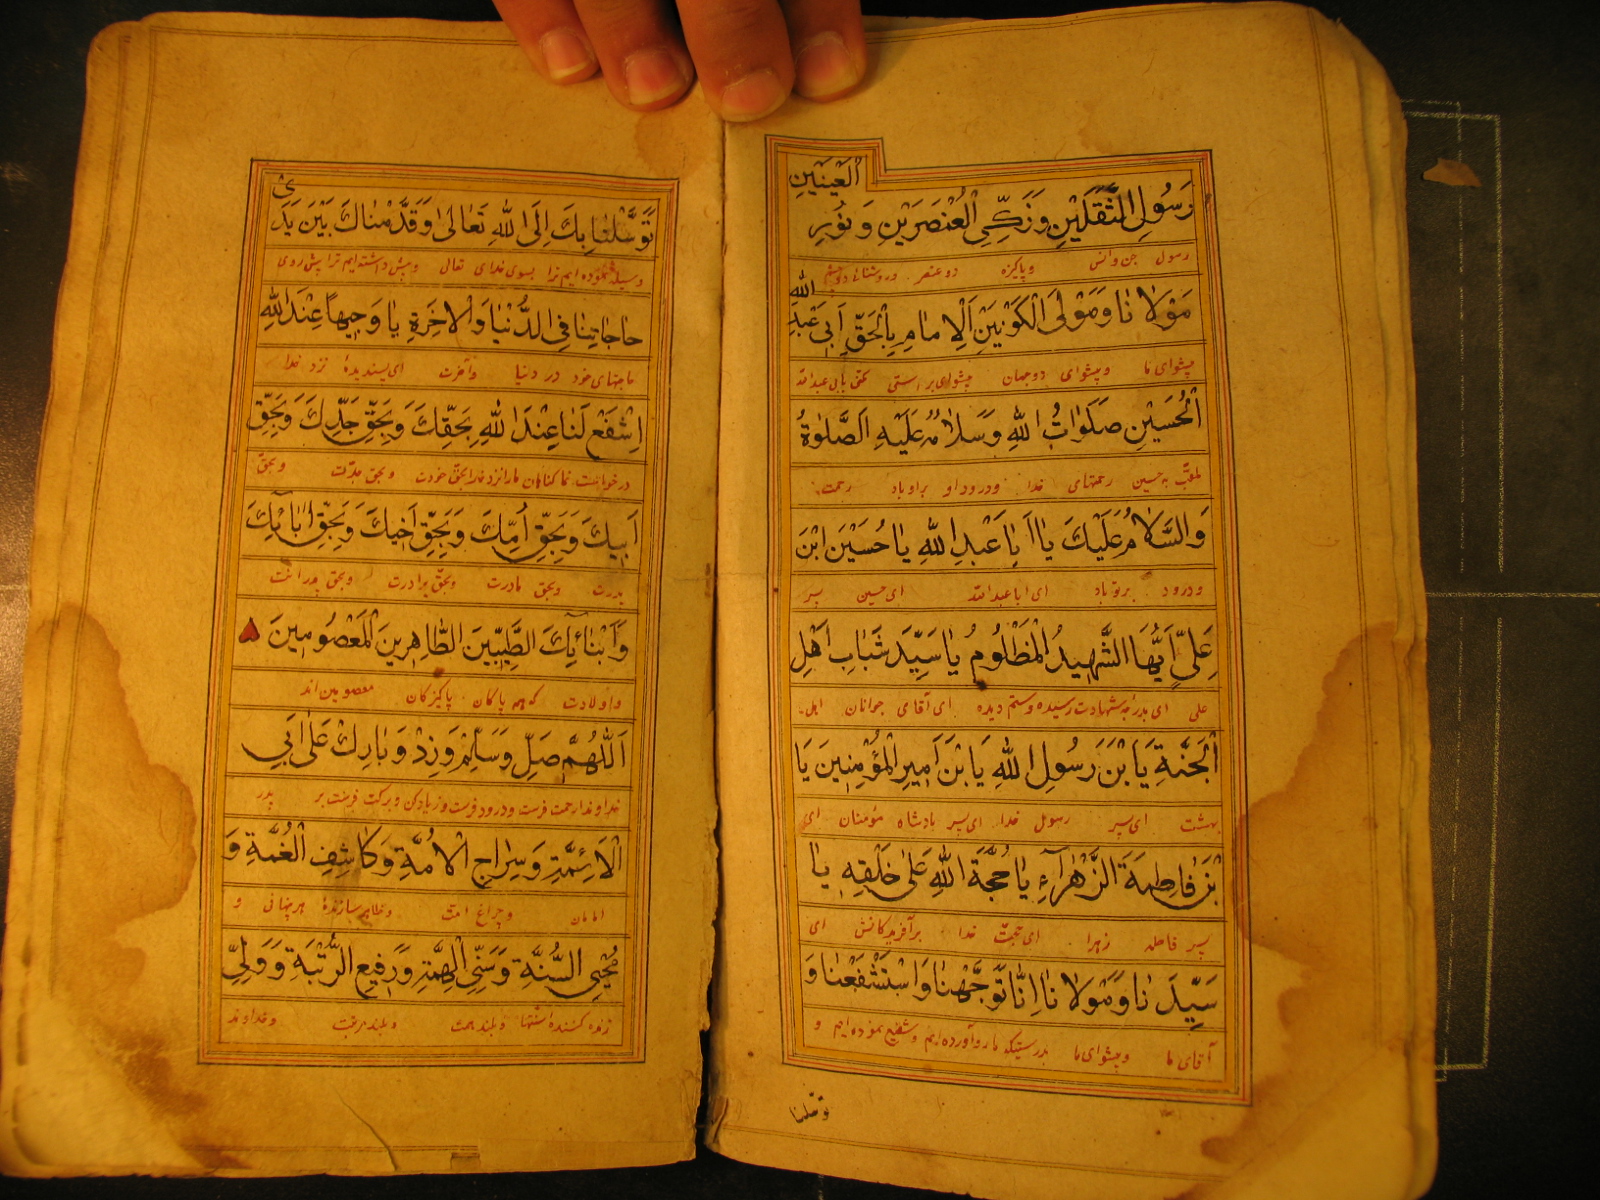 العينين
رَسُولِ الثَّقَلَيْنِ وَزَكِيِّ الْعُنْصَرَيْنِ وَنُورِ
رسول جن وانس وپاکیزه دو عنصر وروشنائی دوچشم
الله
مَوْلَانَا وَمَوْلَى الْكَوْنَيْنِ الْإِمَامِ بِالْحَقِّ اَبِي عَبْدِ
پیشوای ما وپیشوای دوجهان پیشوای براستی یعنی ابی عبدالله
الْحُسَيْنِ صَلَوَاتُ اللهِ وَسَلَامُهُ عَلَيْهِ اَلصَّلَوةُ
ملقب به حسین رحمتهای خدا ودرود او براو باد رحمت
وَالسَّلَامُ عَلَيْكَ يَا اَبَا عَبْدِ اللهِ يَا حُسَيْنَ ابْنَ
ودرود برتو باد ای اباعبدالله ای حسین پسر
عَلِيٍّ اَيُّهَا الشَّهِيدُ الْمَظْلُومُ يَا سَيِّدَ شَبَابِ اَهْلِ
علی ای بدرجه شهادت رسیده وستم دیده ای آقای جوانان اهل
الْجَنَّةِ يَا بْنَ رَسُولِ اللهِ يَا بْنَ اَمِيرِ الْمُؤْمِنِينَ يَا
بهشت ای پسر رسول خدا ای پسر پادشاه مؤمنان ای
بْنَ فَاطِمَةَ الزَّهْرَآءِ يَا حُجَّةَ اللهِ عَلَى خَلْقِهِ يَا
پسر فاطمه زهرا ای حجت خدا برآفریدگانش ای
سَيِّدَنَا وَمَوْلَانَا اِنَّا تَوَجَّهْنَا وَاسْتَشْفَعْنَا وَ
آقای ما وپیشوای ما بدرستیکه ما روآورده ایم وشفیع نموده ایم و
توسلنا
ى
تَوَسَّلْنَا بِكَ اِلَى اللهِ تَعَالَى وَقَدَّمْنَاكَ بَيْنَ يَدَ
وسیله نموده ایم ترا بسوی خدای تعالی وپیش داشته ایم ترا پیش روی
حَاجَاتِنَا فِي الدُّنْيَا وَالْاخِرَةِ يَا وَجِيهاً عِنْدَ اللهِ
حاجتهای خود در دنیا وآخرت ای پسندیدهٔ نزد خدا
اِشْفَعْ لَنَا عِنْدَ اللهِ بِحَقِّكَ وَبِحَقِّ جَدِّكَ وَبِحَقِّ
درخواست نما گناهان مارا نزد خدا بحق خودت وبحق جدت وبحق
اَبِيكَ وَبِحَقِّ اُمِّكَ وَبِحَقِّ اَخِيكَ وَبِحَقِّ اٰبَائِكَ
پدرت وبحق مادرت وبحق برادرت وبحق پدرانت
وَاَبْنَائِكَ الطَّيِّبِينَ الطَّاهِرِينَ الْمَعْصُومِينَ
واولادت که همه پاکان پاکیزگان معصومین اند
اَللّٰهُمَّ صَلِّ وَسَلِّمْ وَزِدْ وَبَارِكْ عَلَى اَبِي
خداوندا رحمت فرست ودرود فرست وزیاد کن وبرکت فرست بر پدر
الْاَئِمَّةِ وَسِرَاجِ الْاُمَّةِ وَكَاشِفِ الْغُمَّةِ وَ
امامان وچراغ امت وظاهر سازندهٔ هر پنهانی و
مُحْيِي السُّنَّةِ وَسَنِيِّ الْهِمَّةِ وَرَفِيعِ الرُّتْبَةِ وَوَلِيِّ
زنده کننده سنتها وبلند همت وبلند مرتبت وخداوند